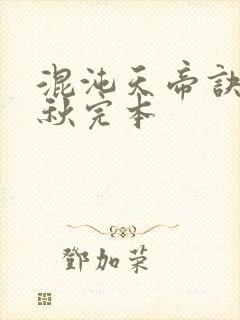 混沌天帝诀
秋完本
鄧加荣